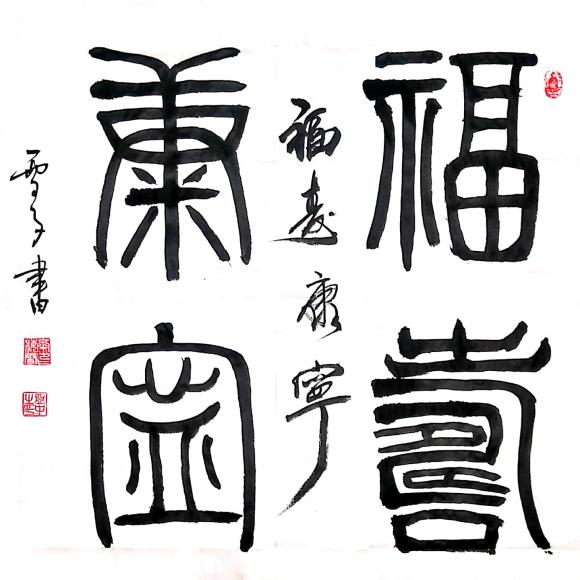 福壽
康寧
福壽康寧
雪子書